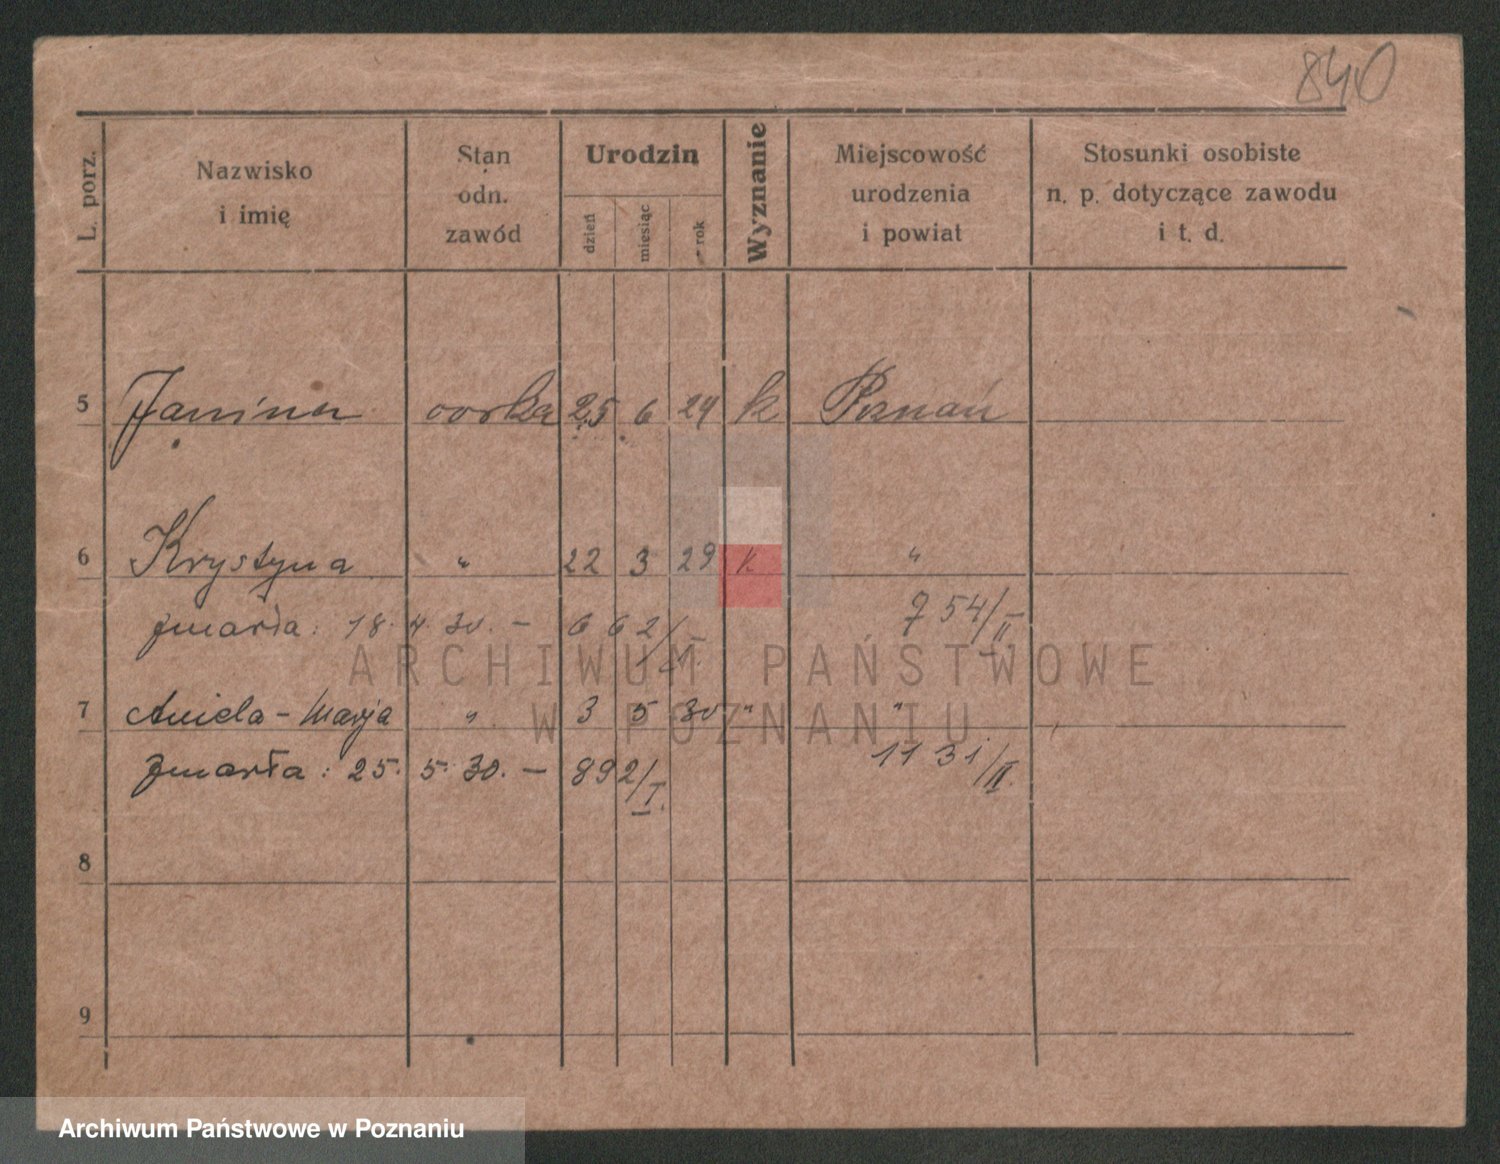 840
L. porz.
Nazwisko
i imię
Stan
odn.
zawód
Urodzin
dzień
miesiąc
rok
Wyznanie
Miejscowość
urodzenia
i powiat
Stosunki osobiste
n. p. dotyczące zawodu
i t. d.
5 Janina corka 25 6 24 k Poznań
6 Krystyna " 22 3 29 k "
zmarła: 18. 4. 30. - 662/I. 754/II
7 Aniela-Marja " 3 5 30 " "
zmarła: 25. 5. 30. - 892/I. 1131/II.
8
9
ARCHIWUM PAŃSTWOWE
W POZNANIU
Archiwum Państwowe w Poznaniu